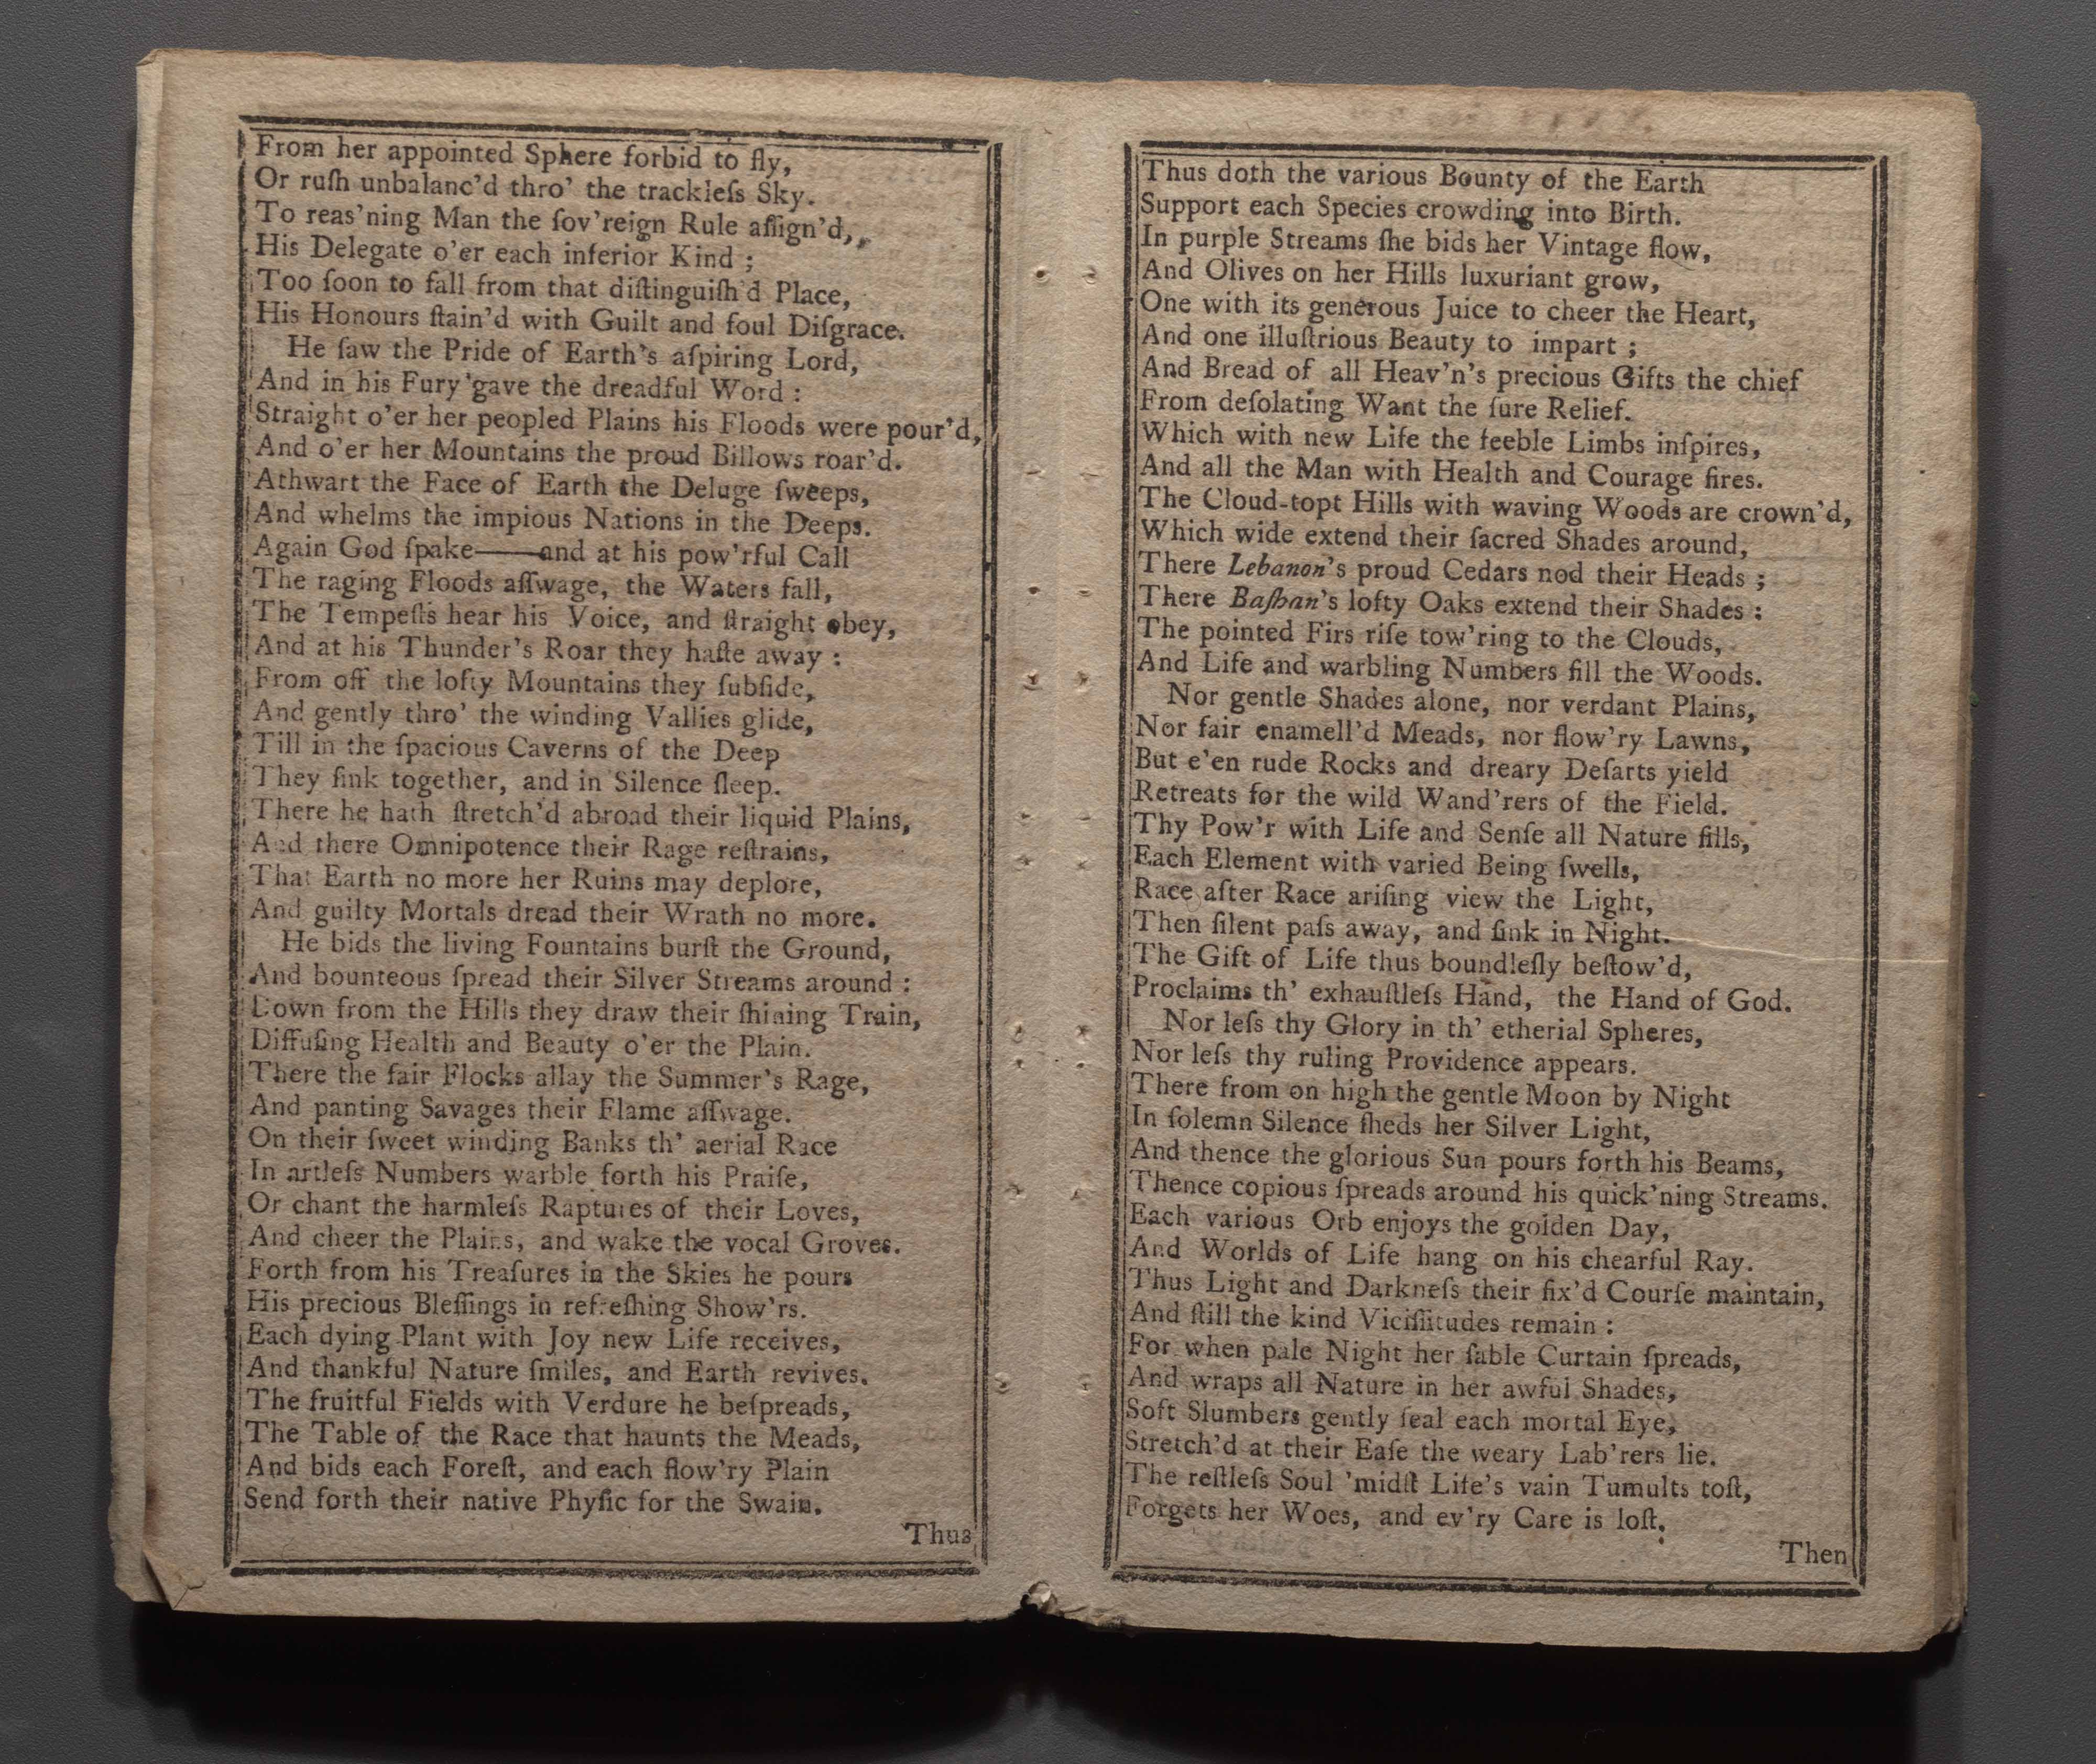 From her appointed Sphere forbid to fly,
Or ruſh unbalanc'd thro' the trackleſs Sky.
To reas'ning Man the ſov'reign Rule aſſign'd,
His Delegate o'er each inferior Kind ;
Too ſoon to fall from that diſtinguiſh'd Place,
His Honours ſtain'd with Guilt and foul Diſgrace.
He ſaw the Pride of Earth's aſpiring Lord,
And in his Fury gave the dreadful Word :
Straight o'er her peopled Plains his Floods were pour'd,
And o'er her Mountains the proud Billows roar'd.
Athwart the Face of Earth the Deluge ſweeps,
And whelms the impious Nations in the Deeps.
Again God ſpake——and at his pow'rful Call
The raging Floods aſſwage, the Waters fall,
The Tempeſts hear his Voice, and ſtraight obey,
And at his Thunder's Roar they haſte away :
From off the lofty Mountains they ſubſide,
And gently thro' the winding Vallies glide,
Till in the ſpacious Caverns of the Deep
They ſink together, and in Silence ſleep.
There he hath ſtretch'd abroad their liquid Plains,
And there Omnipotence their Rage reſtrains,
That Earth no more her Ruins may deplore,
And guilty Mortals dread their Wrath no more.
He bids the living Fountains burſt the Ground,
And bounteous ſpread their Silver Streams around :
Down from the Hills they draw their ſhining Train,
Diffuſing Health and Beauty o'er the Plain.
There the fair Flocks allay the Summer's Rage,
And panting Savages their Flame aſſwage.
On their ſweet winding Banks th' aerial Race
In artleſs Numbers warble forth his Praiſe,
Or chant the harmleſs Raptures of their Loves,
And cheer the Plains, and wake the vocal Groves.
Forth from his Treaſures in the Skies he pours
His precious Bleſſings in refreſhing Show'rs.
Each dying Plant with Joy new Life receives,
And thankful Nature ſmiles, and Earth revives.
The fruitful Fields with Verdure he beſpreads,
The Table of the Race that haunts the Meads,
And bids each Foreſt, and each flow'ry Plain
Send forth their native Phyſic for the Swain.
Thus
Thus doth the various Bounty of the Earth
Support each Species crowding into Birth.
In purple Streams ſhe bids her Vintage flow,
And Olives on her Hills luxuriant grow,
One with its generous Juice to cheer the Heart,
And one illuſtrious Beauty to impart ;
And Bread of all Heav'n's precious Gifts the chief
From deſolating Want the ſure Relief.
Which with new Life the feeble Limbs inſpires,
And all the Man with Health and Courage fires.
The Cloud-topt Hills with waving Woods are crown'd,
Which wide extend their ſacred Shades around,
There Lebanon's proud Cedars nod their Heads ;
There Baſhan's lofty Oaks extend their Shades :
The pointed Firs riſe tow'ring to the Clouds,
And Life and warbling Numbers fill the Woods.
Nor gentle Shades alone, nor verdant Plains,
Nor fair enamell'd Meads, nor flow'ry Lawns,
But e'en rude Rocks and dreary Deſarts yield
Retreats for the wild Wand'rers of the Field.
Thy Pow'r with Life and Senſe all Nature fills,
Each Element with varied Being ſwells,
Race after Race ariſing view the Light,
Then ſilent paſs away, and ſink in Night.
The Gift of Life thus boundleſly beſtow'd,
Proclaims th' exhauſtleſs Hand, the Hand of God.
Nor leſs thy Glory in th' etherial Spheres,
Nor leſs thy ruling Providence appears.
There from on high the gentle Moon by Night
In ſolemn Silence ſheds her Silver Light,
And thence the glorious Sun pours forth his Beams,
Thence copious ſpreads around his quick'ning Streams.
Each various Orb enjoys the golden Day,
And Worlds of Life hang on his chearful Ray.
Thus Light and Darkneſs their fix'd Courſe maintain,
And ſtill the kind Viciſſitudes remain :
For when pale Night her ſable Curtain ſpreads,
And wraps all Nature in her awful Shades,
Soft Slumbers gently ſeal each mortal Eye,
Stretch'd at their Eaſe the weary Lab'rers lie.
The reſtleſs Soul 'midſt Life's vain Tumults toſt,
Forgets her Woes, and ev'ry Care is loſt.
Then